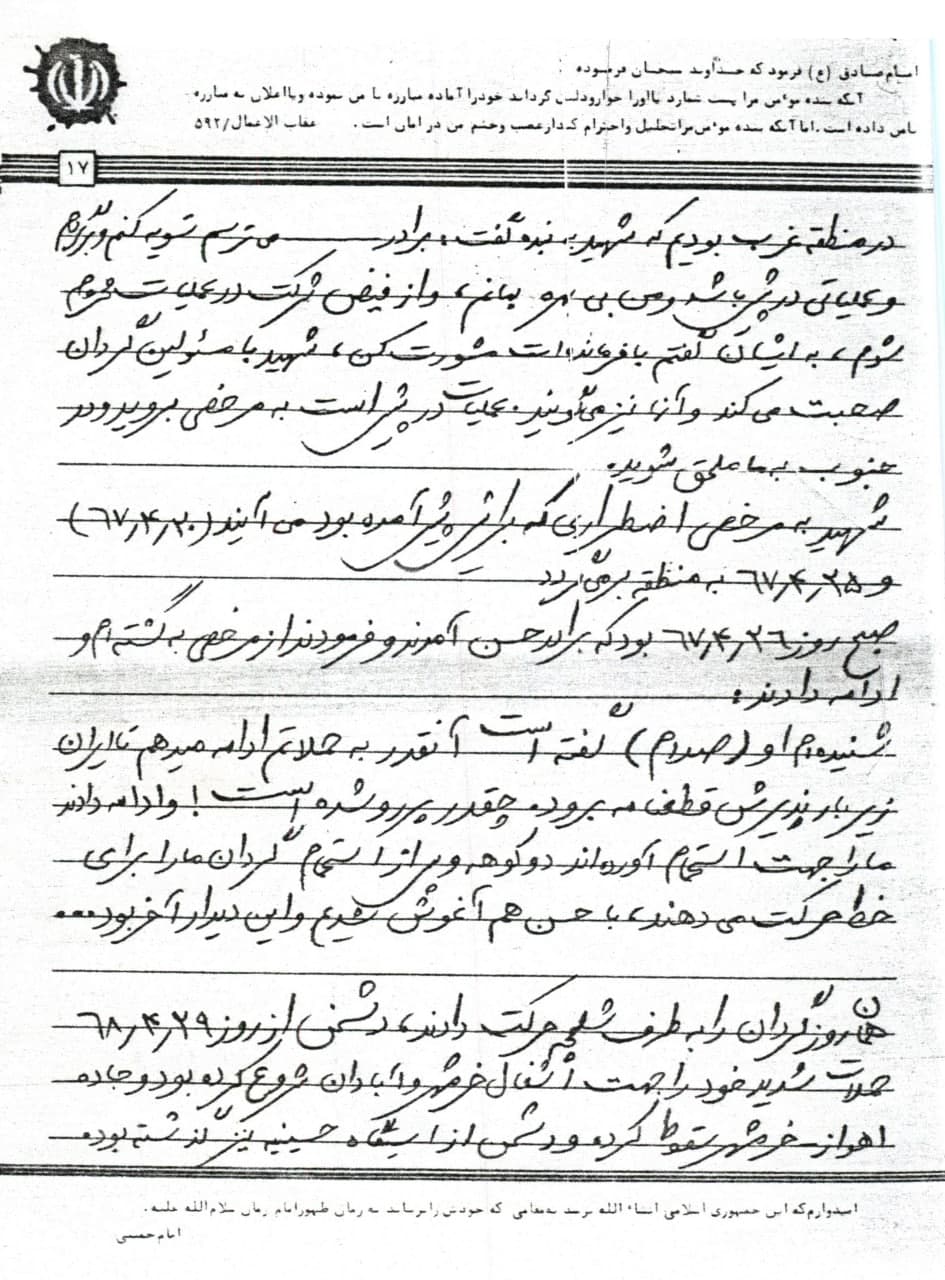 امام صادق (ع) فرمود که خداوند سبحان فرموده :
آنکه بنده مؤمن مرا پست شمارد یا او را خوار و ذلیل گرداند خود را آماده مبارزه با من نموده و یا اعلان به مبارزه
با من داده است. اما آنکه بنده مؤمن مرا تجلیل و احترام کند از غضب و خشم من در امان است. عقاب الاعمال/۵۹۲
۱۷
در منطقه غرب بودیم که شهید به بنده گفت: برادر می‌ترسم تسویه کنم و بروم
و عملیاتی در پیش باشد و من بی بهره بمانم، و از فیض شرکت در عملیات محروم
شوم، به ایشان گفتم با فرمانده‌ات مشورت کن، شهید با مسئولین گردان
صحبت می کند و آنها نیز می‌گویند. عملیات در پیش است به مرخصی بروید و در
جنوب به ما ملحق شوید.
شهید به مرخصی اضطراریی که برایش پیش آمده بود می آیند (۶۷,۴,۲۰)
و ۶۷,۴,۲۵ به منطقه برمی‌گردد
صبح روز ۶۷,۴,۲۶ بود که برادر حسن آمدند و فرمودند از مرخصی برگشته‌ام و
ادامه دادند:
شنیده‌ام او (صدام) گفته است آنقدر به حملاتم ادامه میدهم تا ایران
زیر بار پذیرش قطعنامه برود. چقدر پررو شده است! و ادامه دادند
ما را جهت استحمام آورده‌اند دوکوهه و پس از استحمام گردان ما را برای
خط حرکت می دهند، با حسن هم آغوش شدیم و این دیدار آخر بود...
همان روز گردان را به طرف شلمچه حرکت دادند، دشمن از روز ۶۸,۴,۲۹
حملات شدید خود را جهت اشغال خرمشهر و آبادان شروع کرده بود و جاده
اهواز- خرمشهر سقوط کرده و دشمن از ایستگاه حسینیه نیز گذشته بود.
امیدوارم که این جمهوری اسلامی انشاء الله برسد به مقامی که خودش را برساند به زمان ظهور امام زمان سلام الله علیه.
امام خمینی